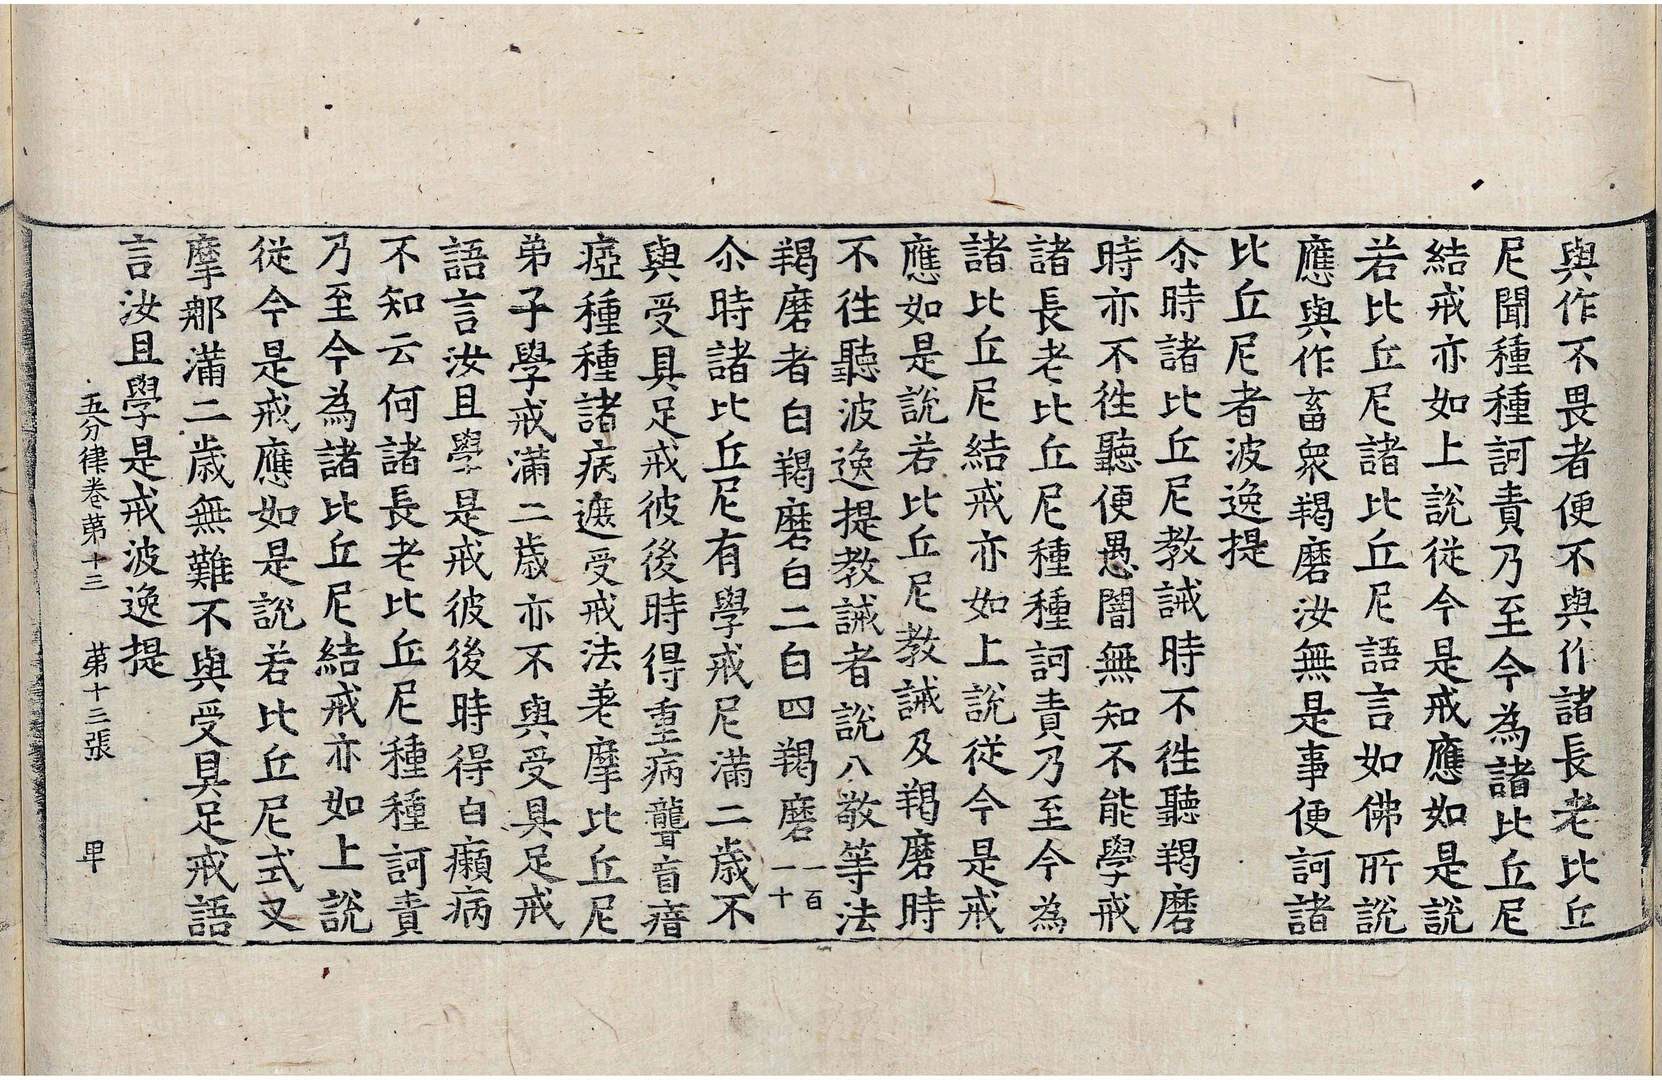 與作不畏者便不與作諸長老比丘
尼聞種種訶責乃至今為諸比丘尼
結戒亦如上說從今是戒應如是說
若比丘尼諸比丘尼語言如佛所說
應與作畜衆羯磨汝無是事便訶諸
比丘尼者波逸提
尒時諸比丘尼教誡時不徃聽羯磨
時亦不徃聽便愚闇無知不能學戒
諸長老比丘尼種種訶責乃至今為
諸比丘尼結戒亦如上說從今是戒
應如是說若比丘尼教誡及羯磨時
不徃聽波逸提教誡者說八敬等法
羯磨者白白羯磨白二白四羯磨一百一十
尒時諸比丘尼有學戒尼滿二歲不
與受具足戒彼後時得重病聾盲瘖
瘂種種諸病遮受戒法差摩比丘尼
弟子學戒滿二歲亦不與受具足戒
語言汝且學是戒彼後時得白癩病
不知云何諸長老比丘尼種種訶責
乃至今為諸比丘尼結戒亦如上說
從今是戒應如是說若比丘尼式叉
摩那滿二歲無難不與受具足戒語
言汝且學是戒波逸提
五分律卷第十三 第十三張 甲